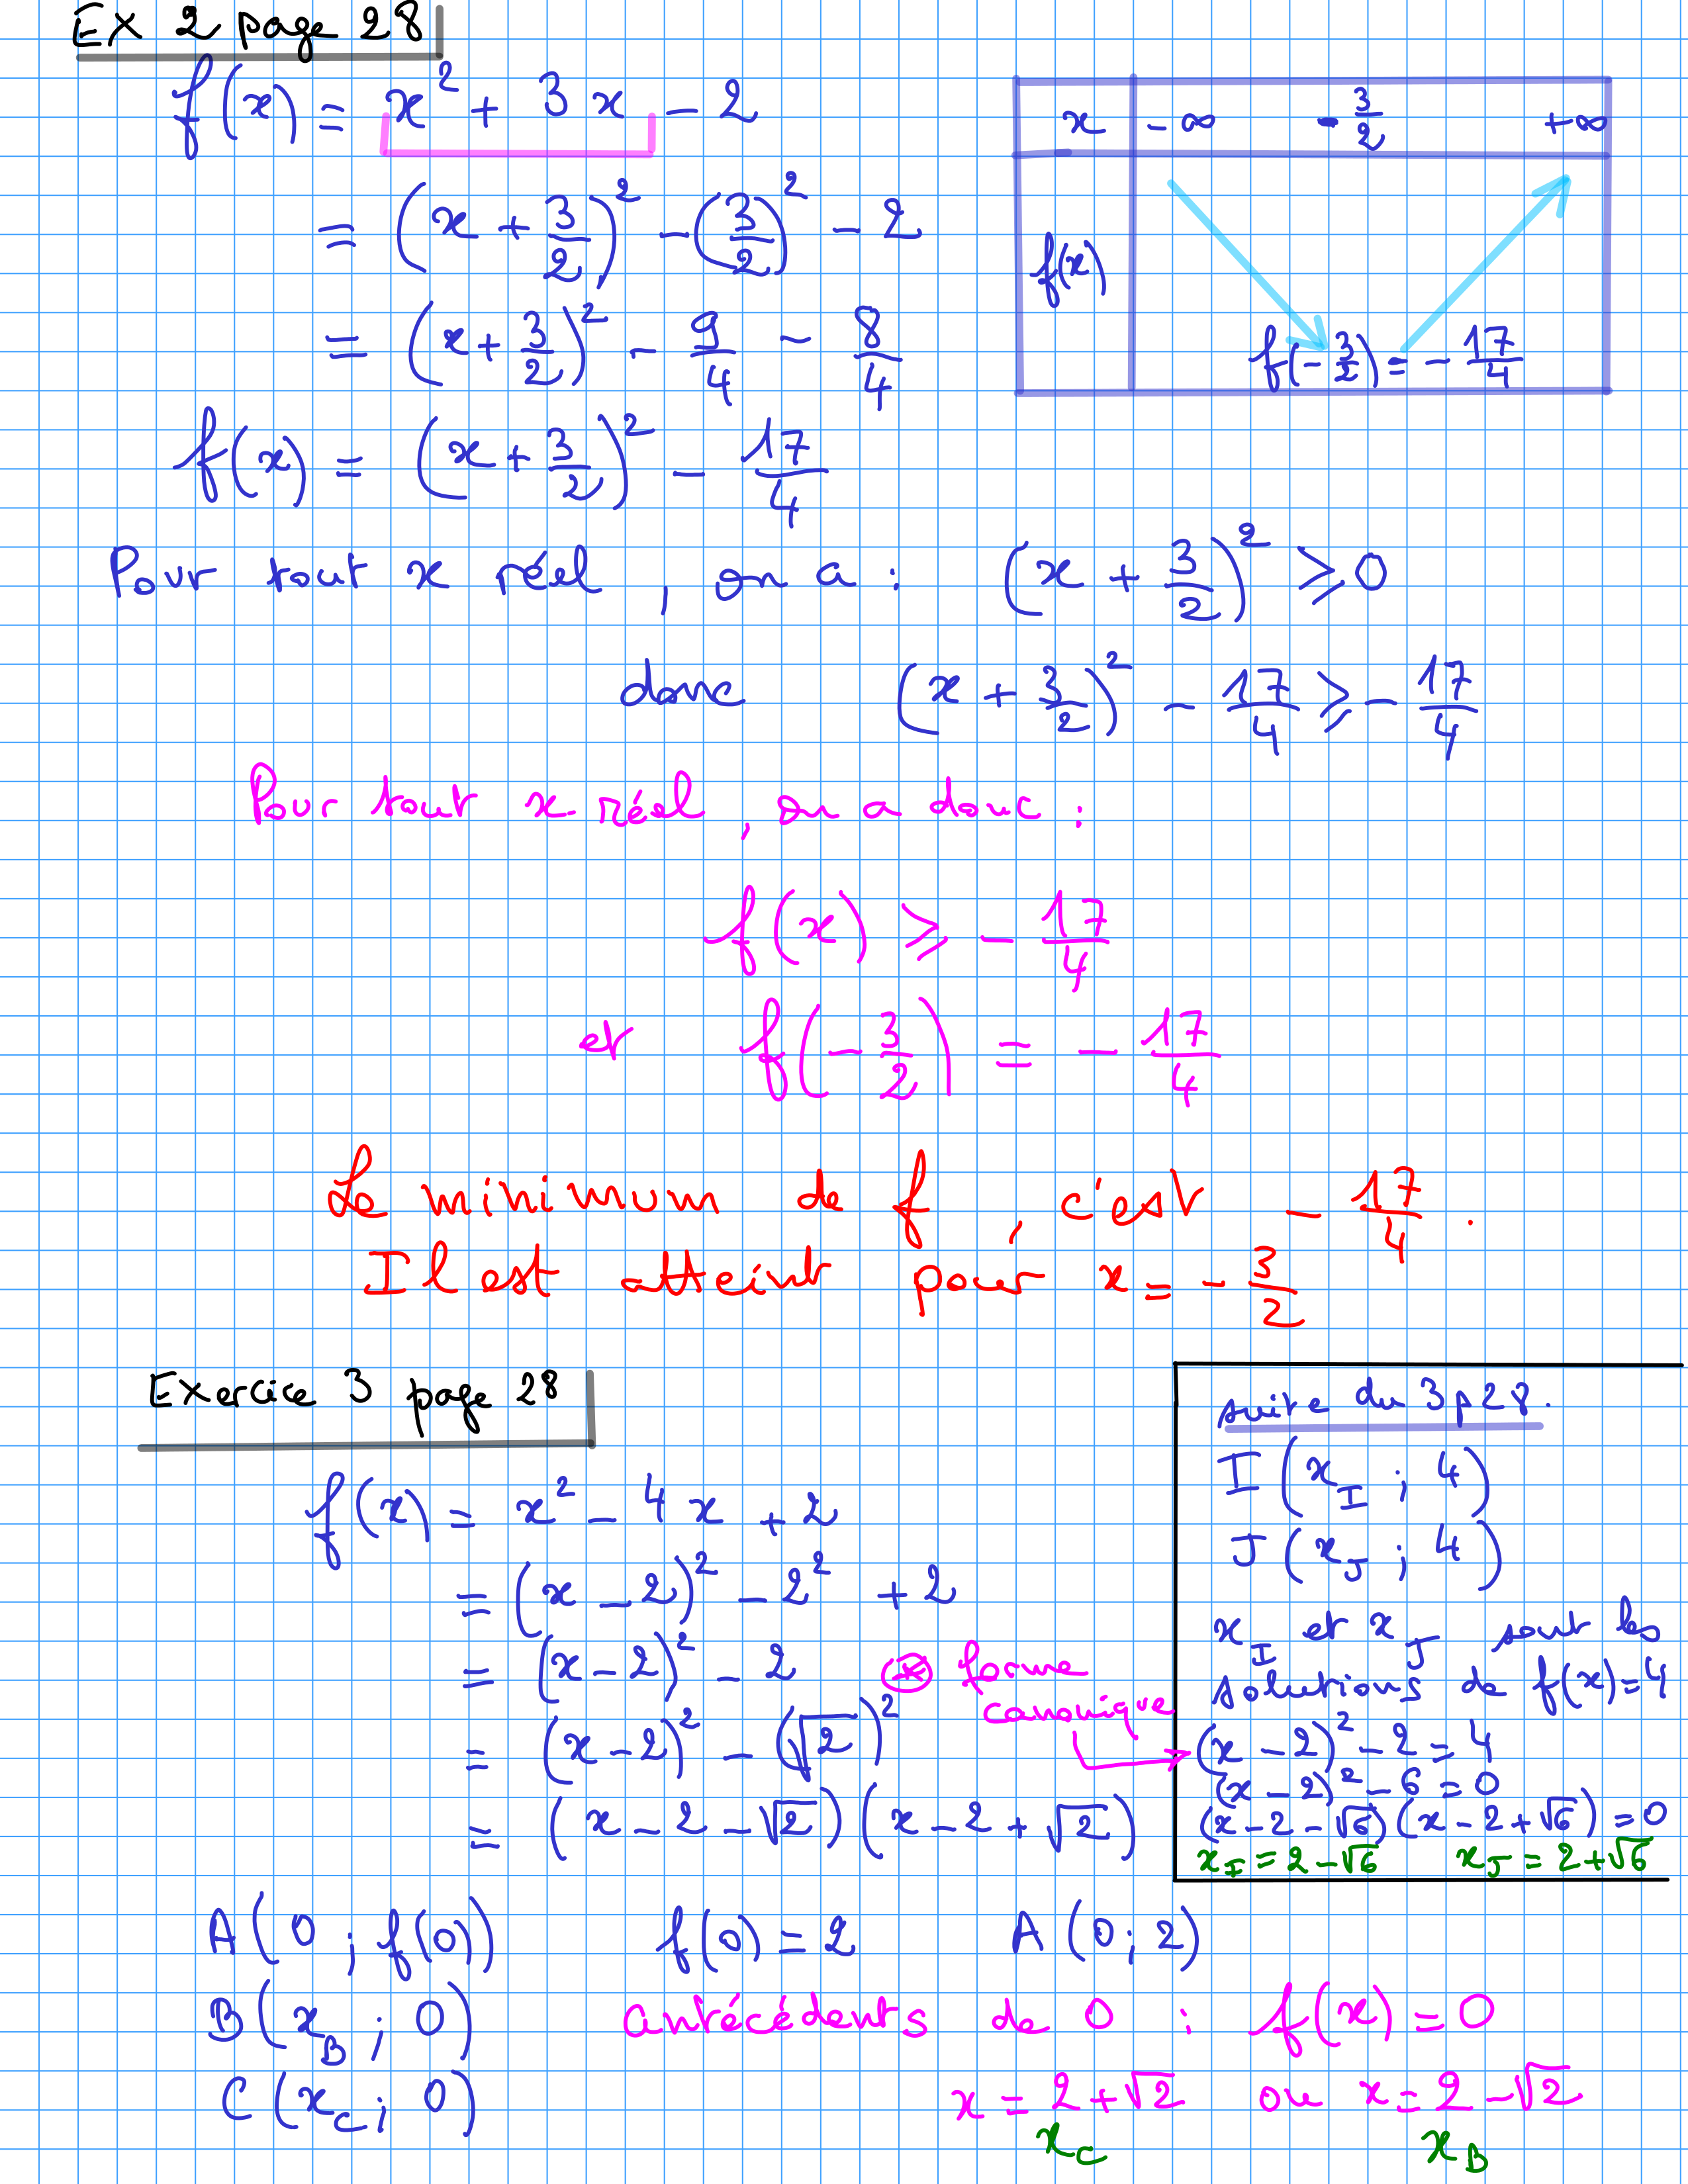 EX 2 page 28
f(x) = x² + 3x - 2
= (x + 3/2)² - (3/2)² - 2
= (x + 3/2)² - 9/4 - 8/4
f(x) = (x + 3/2)² - 17/4
x -∞ -3/2 +∞
f(x)
f(-3/2) = -17/4
Pour tout x réel, on a : (x + 3/2)² ⩾ 0
donc (x + 3/2)² - 17/4 ⩾ -17/4
Pour tout x réel, on a donc :
f(x) ⩾ -17/4
et f(-3/2) = -17/4
Le minimum de f, c'est -17/4.
Il est atteint pour x = -3/2
Exercice 3 page 28
f(x) = x² - 4x + 2
= (x - 2)² - 2² + 2
= (x - 2)² - 2 ⊛ forme
canonique
= (x - 2)² - (√2)²
= (x - 2 - √2)(x - 2 + √2)
suite du 3 p 28.
I (x_I ; 4)
J (x_J ; 4)
x_I et x_J sont les
solutions de f(x) = 4
(x - 2)² - 2 = 4
(x - 2)² - 6 = 0
(x - 2 - √6)(x - 2 + √6) = 0
x_I = 2 - √6 x_J = 2 + √6
A(0 ; f(0)) f(0) = 2 A(0 ; 2)
B(x_B ; 0) antécédents de 0 : f(x) = 0
C(x_C ; 0) x = 2 + √2 ou x = 2 - √2
x_C x_B